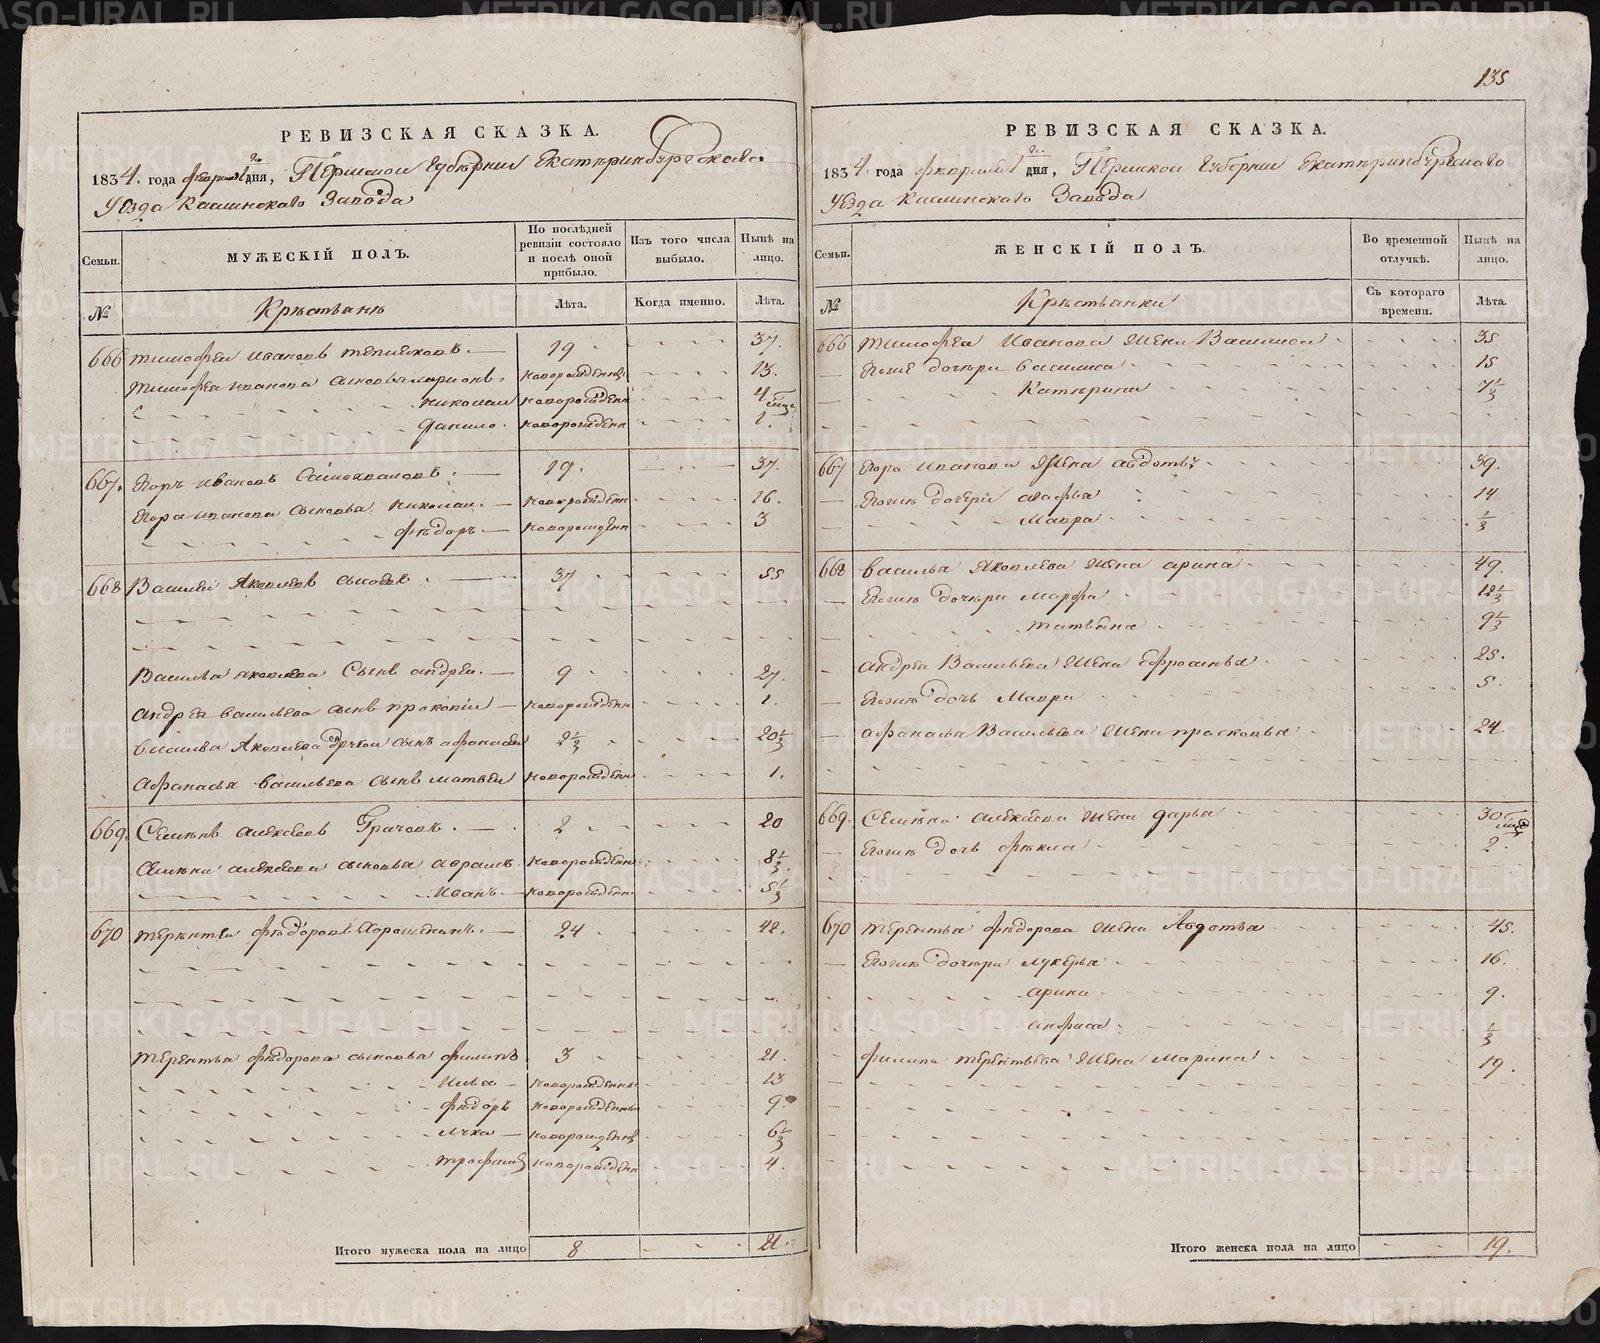 135
РЕВИЗСКАЯ СКАЗКА.
1834. года февраля 1 го дня, Пермской Губернии Екатеринбургскаго
Уезда Каслинскаго Завода
Семьи. МУЖЕСКІЙ ПОЛЪ. По послѣдней ревизіи состояло и послѣ оной прибыло. Изъ того числа выбыло. Нынѣ на лицо.
№ Крестьянъ Лѣта. Когда именно. Лѣта.
666 тимофеи ивановъ 19 37.
тимофеа иванова сыновья ларионъ. новорожденъ 13.
николаи новорожден 4
данило. новорожден 1.
667. Егоръ ивановъ 19. 37.
Егора иванова сыновья николаи. новорожден 16.
фѣдоръ новорожден 3
668 Василеи Яковлевъ 37 55
Василья яковлева Сынъ андреи. 9 27.
андрея васильева сынъ прокопiи новорожден 1.
василья Яковлева сынъ афанасеи 2 1/2 20 1/2
афанасья васильева сынъ матвеи новорожден 1.
669. Семѣнъ алексеевъ Грачовъ. 2 20
семѣна алексеева сыновья абрамъ новорожден 8 1/2
Иванъ новорожден 5 1/2
670 терентеи фѣдоровъ 24 42.
терентья фѣдорова сыновья филипъ 3 21.
Илья новорожденъ 13
фѣдоръ новорожденъ 9.
лука новорожденъ 6 1/2
трофимъ новорожден 4.
Итого мужеска пола на лицо 8 21.
РЕВИЗСКАЯ СКАЗКА.
1834. года февраля 1 го дня, Пермской Губернии Екатеринбургскаго
Уезда Каслинскаго Завода
Семьи. ЖЕНСКІЙ ПОЛЪ. Во временной отлучкѣ. Нынѣ на лицо.
№ Крестьянки Съ котораго времени. Лѣта.
666 тимофеа Иванова жена Василиса 35
Егоже дочери василиса 15
Катерина 7 1/2
667 Егора иванова жена авдотья 39.
Егоже дочери марфа 14
Мавра 1/2
668 василья Яковлева жена арина 49.
Егоже дочери марфа 12 1/2
татьяна 9 1/2
андрея Васильева жена ефросинья 25.
Егоже дочь Мавра 5.
афанасья Васильева жена прасковья 24.
669. Семѣна алексеева жена дарья 30
Егоже дочь фекла 2.
670 терентья фѣдорова жена Авдотья 45.
Егоже дочери лукерья 16.
арина 9.
анфиса 1/2
филипа терентьева жена Марина 19.
Итого женска пола на лицо 19.
METRIKI.GASO-URAL.RU